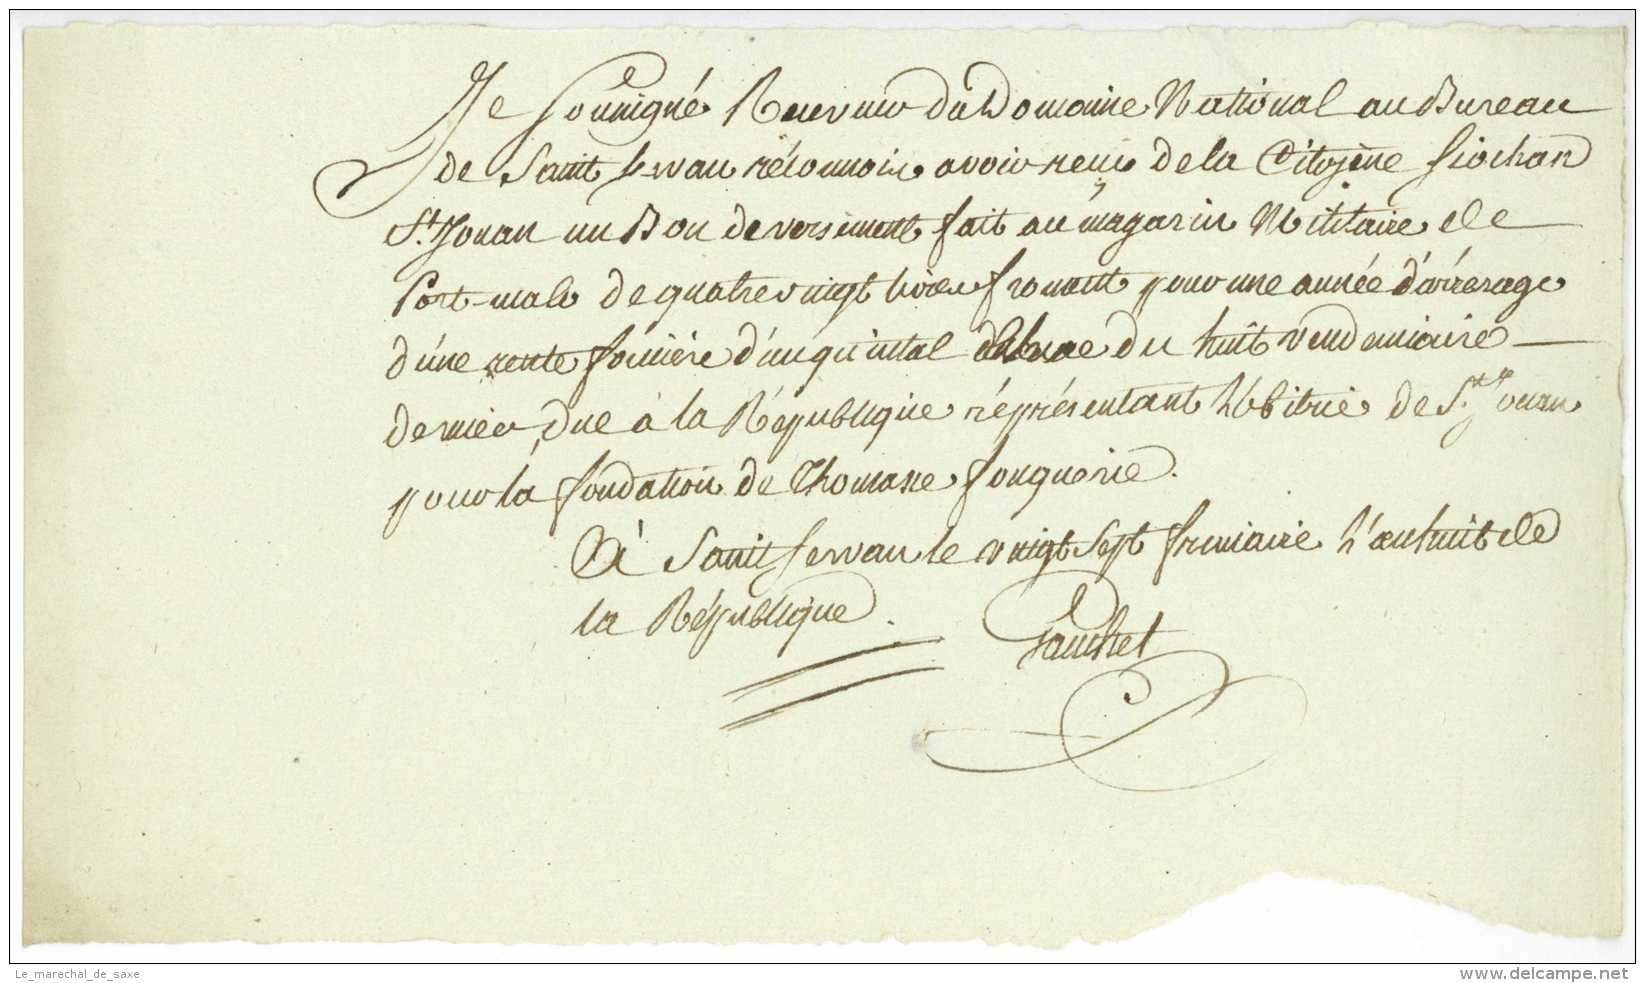 Je Soussigné Receveur du Domaine National au Bureau
de Saint Servan réconnois avoir reçu de la Citojene Fiochan
St. Jouan un Bon de versement fait au magasin Militaire de
Port-malo de quatrevingt livres froment pour une année d'arrérage
d'une rente foncière d'un quintal du huit vendemiaire
dernier, due à la République réprésentant l'Abitué de St. Jouan
pour la fondation de Thomasse Fouquerie.
À Saint Servan le vingt Sept frimaire l'an huit de
la République.
Gauchet
Le_marechal_de_saxe
www.delcampe.net